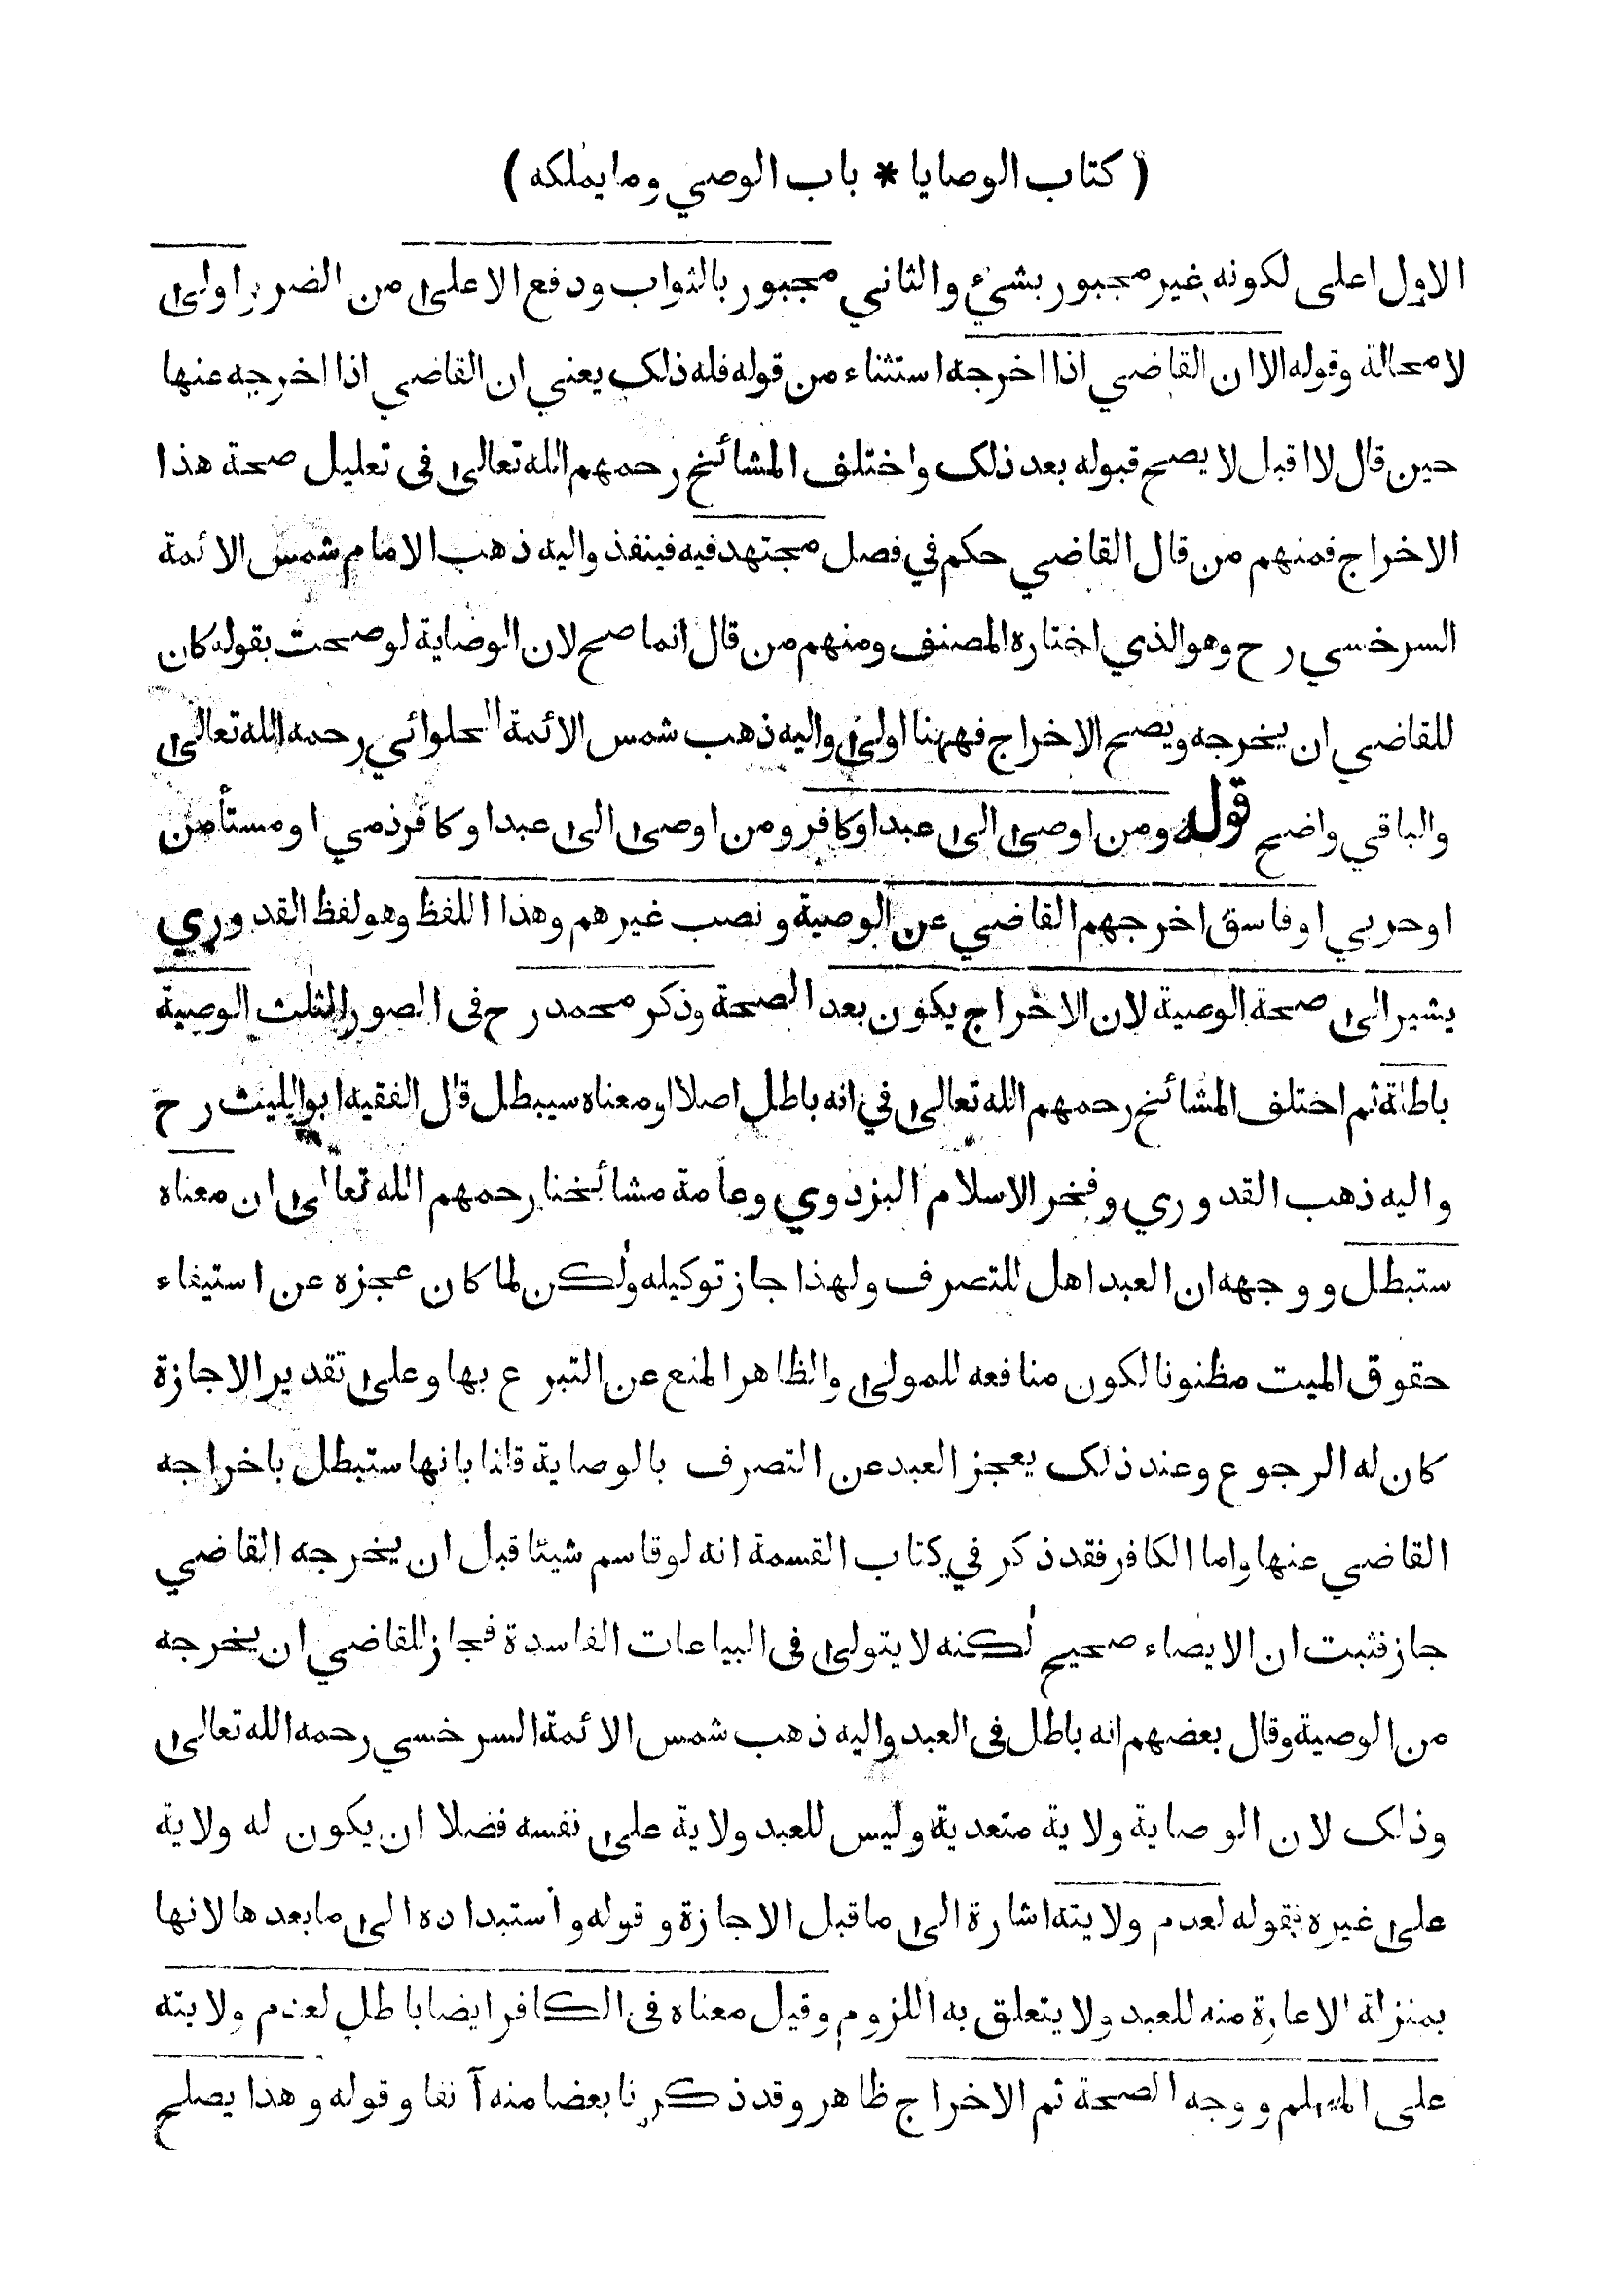 ( كتاب الوصايا * باب الوصي وما يملكه )
الاول اعلى لكونه غير مجبور بشيء والثاني مجبور بالثواب ودفع الاعلى من الضرر اولى
لا محالة وقوله الا ان القاضي اذا اخرجه استثناء من قوله فله ذلك يعني ان القاضي اذا اخرجه عنها
حين قال لا اقبل لا يصح قبوله بعد ذلك واختلف المشائخ رحمهم الله تعالى في تعليل صحة هذا
الاخراج فمنهم من قال القاضي حكم في فصل مجتهد فيه فينفذ واليه ذهب الامام شمس الائمة
السرخسي رح وهو الذي اختاره المصنف ومنهم من قال انما صح لان الوصاية لو صحت بقوله كان
للقاضي ان يخرجه ويصح الاخراج فههنا اولى واليه ذهب شمس الائمة الحلوائي رحمه الله تعالى
والباقي واضح قوله ومن اوصى الى عبد او كافر ومن اوصى الى عبد او كافر ذمي او مستأمن
او حربي او فاسق اخرجهم القاضي عن الوصية ونصب غيرهم وهذا اللفظ وهو لفظ القدوري
يشير الى صحة الوصية لان الاخراج يكون بعد الصحة وذكر محمد رح في الصور الثلث الوصية
باطلة ثم اختلف المشائخ رحمهم الله تعالى في انه باطل اصلا او معناه سيبطل قال الفقيه ابو الليث رح
واليه ذهب القدوري وفخر الاسلام البزدوي وعامة مشائخنا رحمهم الله تعالى ان معناه
ستبطل ووجهه ان العبد اهل للتصرف ولهذا جاز توكيله ولٰكن لما كان عجزه عن استيفاء
حقوق الميت مظنونا لكون منافعه للمولى والظاهر المنع عن التبرع بها وعلى تقدير الاجازة
كان له الرجوع وعند ذلك يعجز العبد عن التصرف بالوصاية قلنا بانها ستبطل باخراجه
القاضي عنها واما الكافر فقد ذكر في كتاب القسمة انه لو قاسم شيئا قبل ان يخرجه القاضي
جاز فثبت ان الايصاء صحيح لٰكنه لا يتولى في البياعات الفاسدة فجاز للقاضي ان يخرجه
من الوصية وقال بعضهم انه باطل في العبد واليه ذهب شمس الائمة السرخسي رحمه الله تعالى
وذلك لان الوصاية ولاية متعدية وليس للعبد ولاية على نفسه فضلا ان يكون له ولاية
على غيره فقوله لعدم ولايته اشارة الى ما قبل الاجازة وقوله واستبداده الى ما بعدها لانها
بمنزلة الاعارة منه للعبد ولا يتعلق به اللزوم وقيل معناه في الكافر ايضا باطل لعدم ولايته
على المسلم ووجه الصحة ثم الاخراج ظاهر وقد ذكرنا بعضا منه آنفا وقوله وهذا يصلح